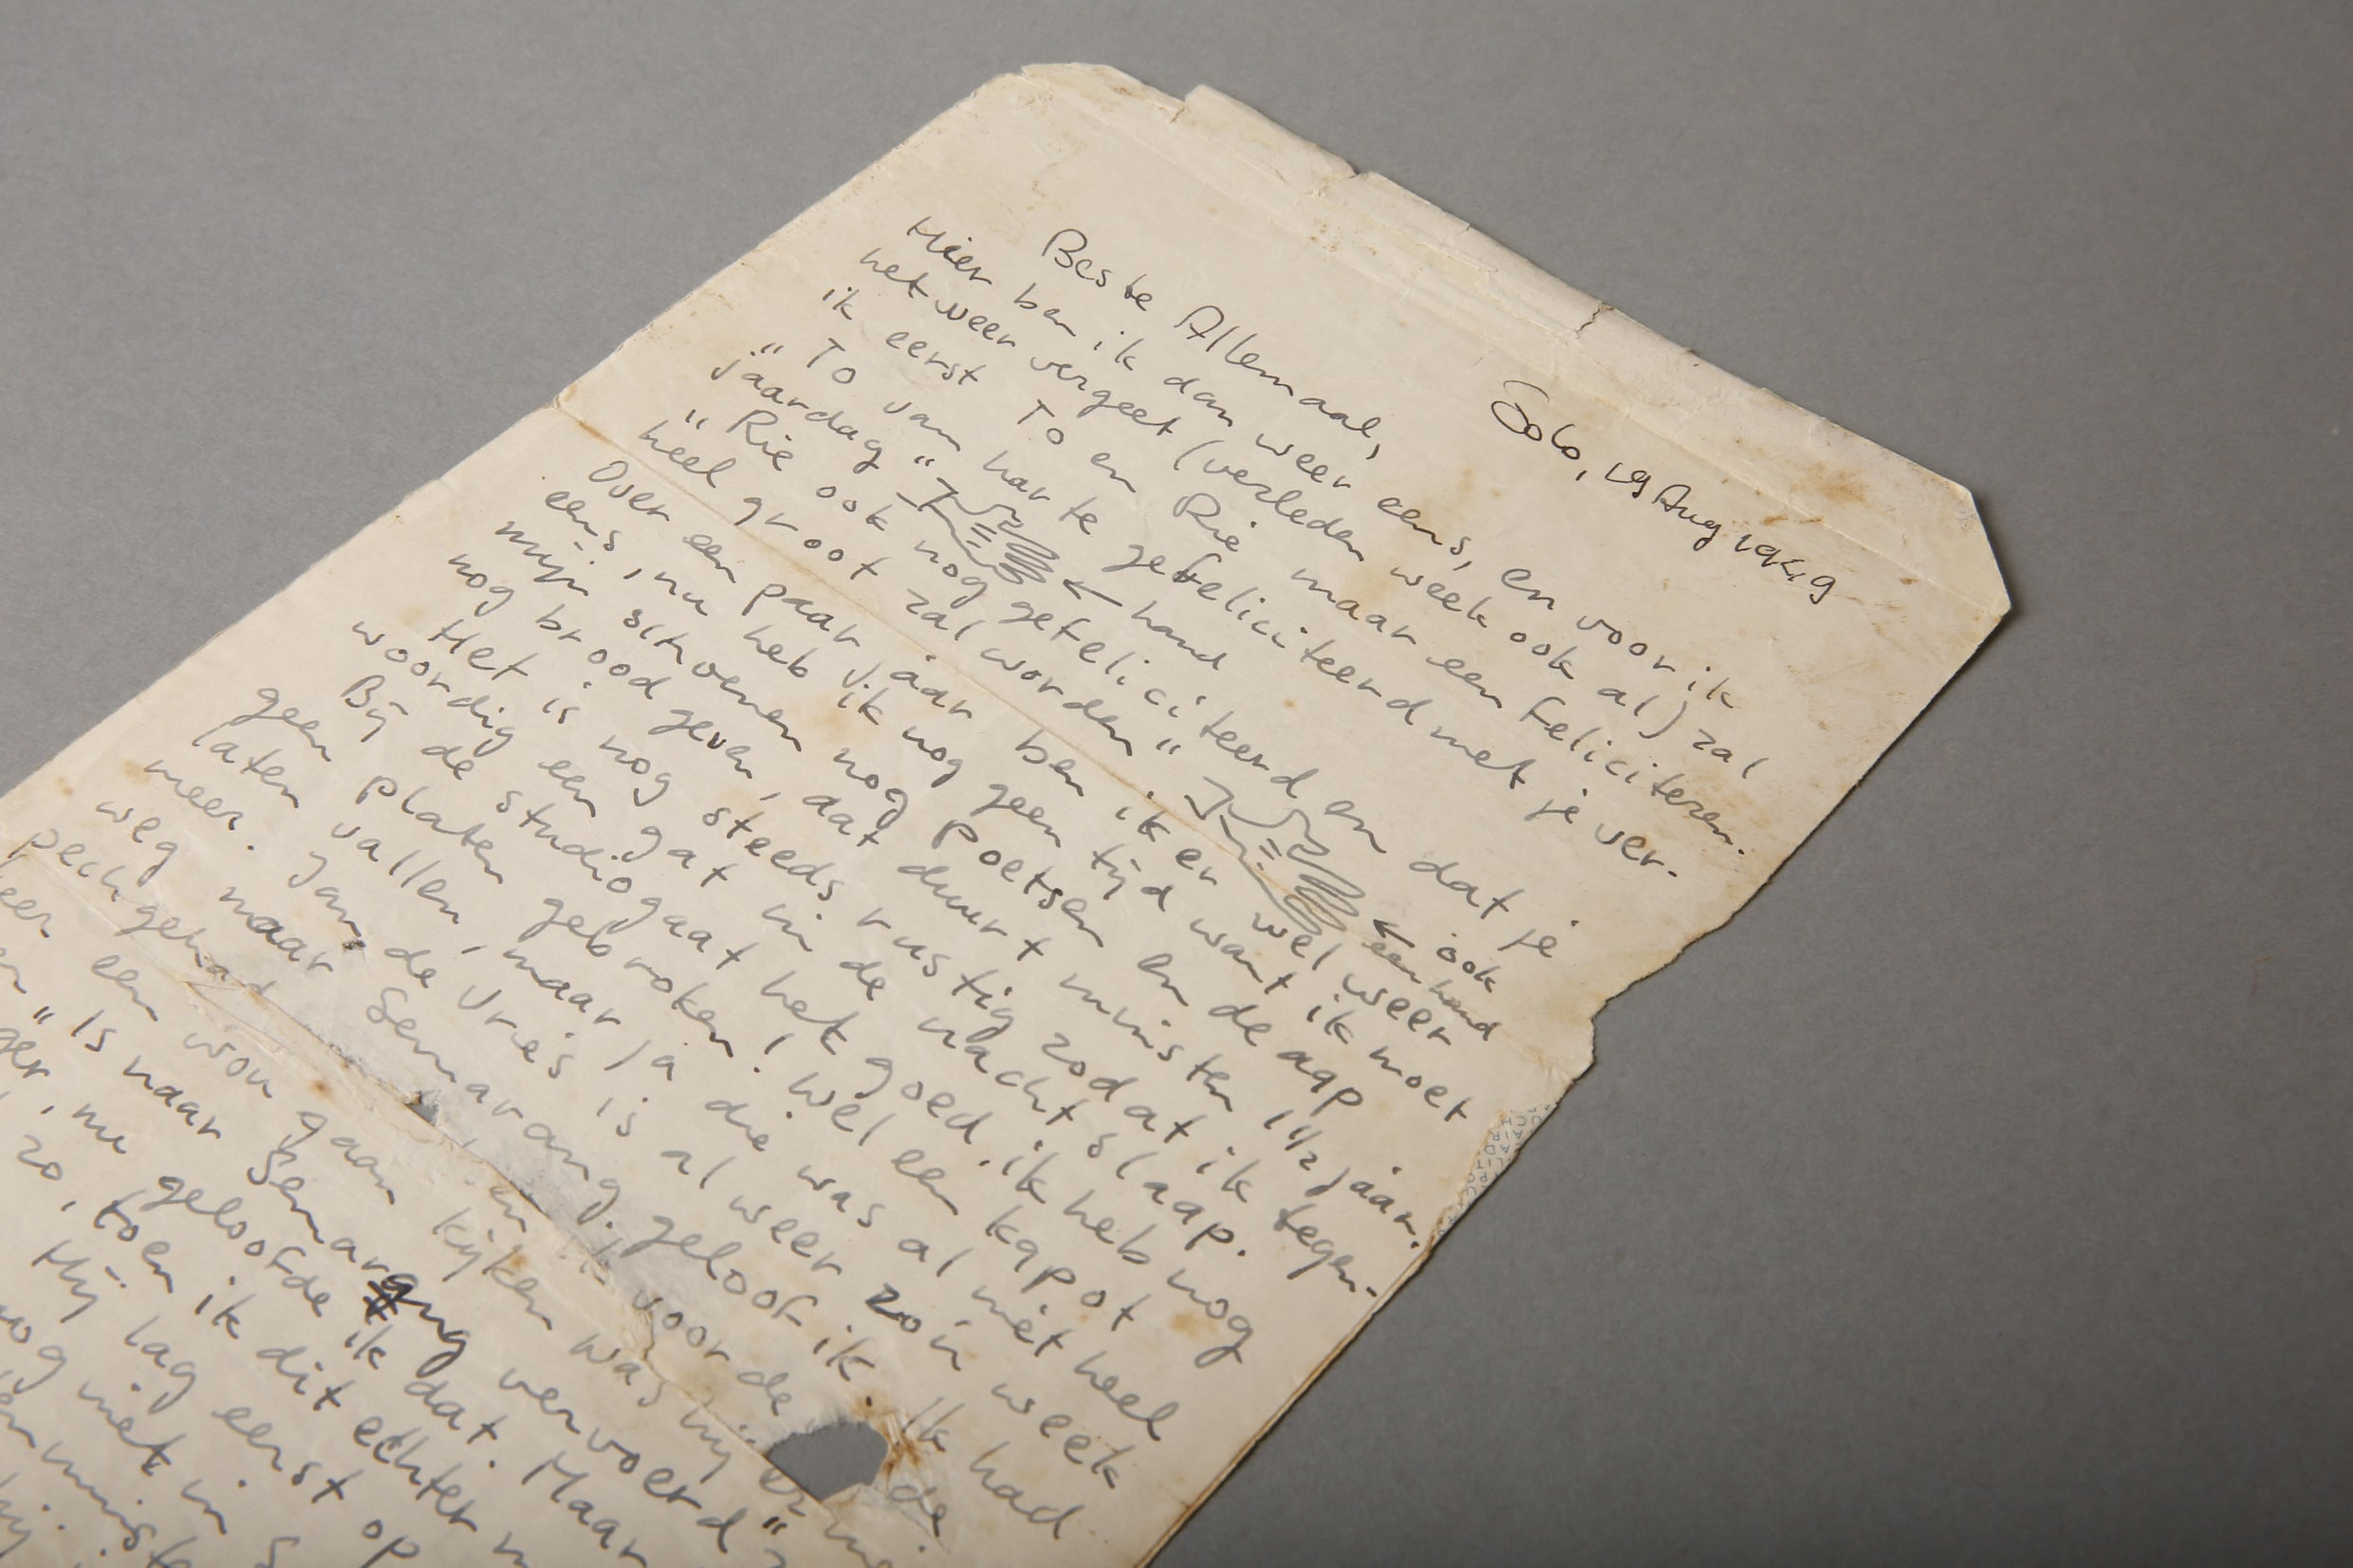 Solo, 19 Aug 1949
Beste Allemaal,
Hier ben ik dan weer eens, en voor ik
het weer vergeet (verleden week ook al) zal
ik eerst To en Rie maar een feliciteren.
"To van harte gefeliciteerd met je ver-
jaardag" ← hand
"Rie ook nog gefeliciteerd en dat je
heel groot zal worden" ← ook
een hand
Over een paar jaar ben ik er wel weer
eens, nu heb ik nog geen tijd want ik moet
mijn schoenen nog poetsen en de aap
nog brood geven, dat duurt minsten 1½ jaar.
Het is nog steeds rustig zodat ik tegen-
woordig een gat in de nacht slaap.
Bij de studio gaat het goed. ik heb nog
geen platen gebroken! Wel een kapot
laten vallen, maar ja die was al niet heel
meer. Jan de Vries is al weer zo'n week
weg naar Semarang geloof ik. Ik had
pech gehad en ik voor de de
een won gaan kijken was hij er
"Is naar Semarang vervoerd"
, nu geloofde ik dat. Maar
zo, toen ik dit echter
Hij lag eerst op
nog niet in